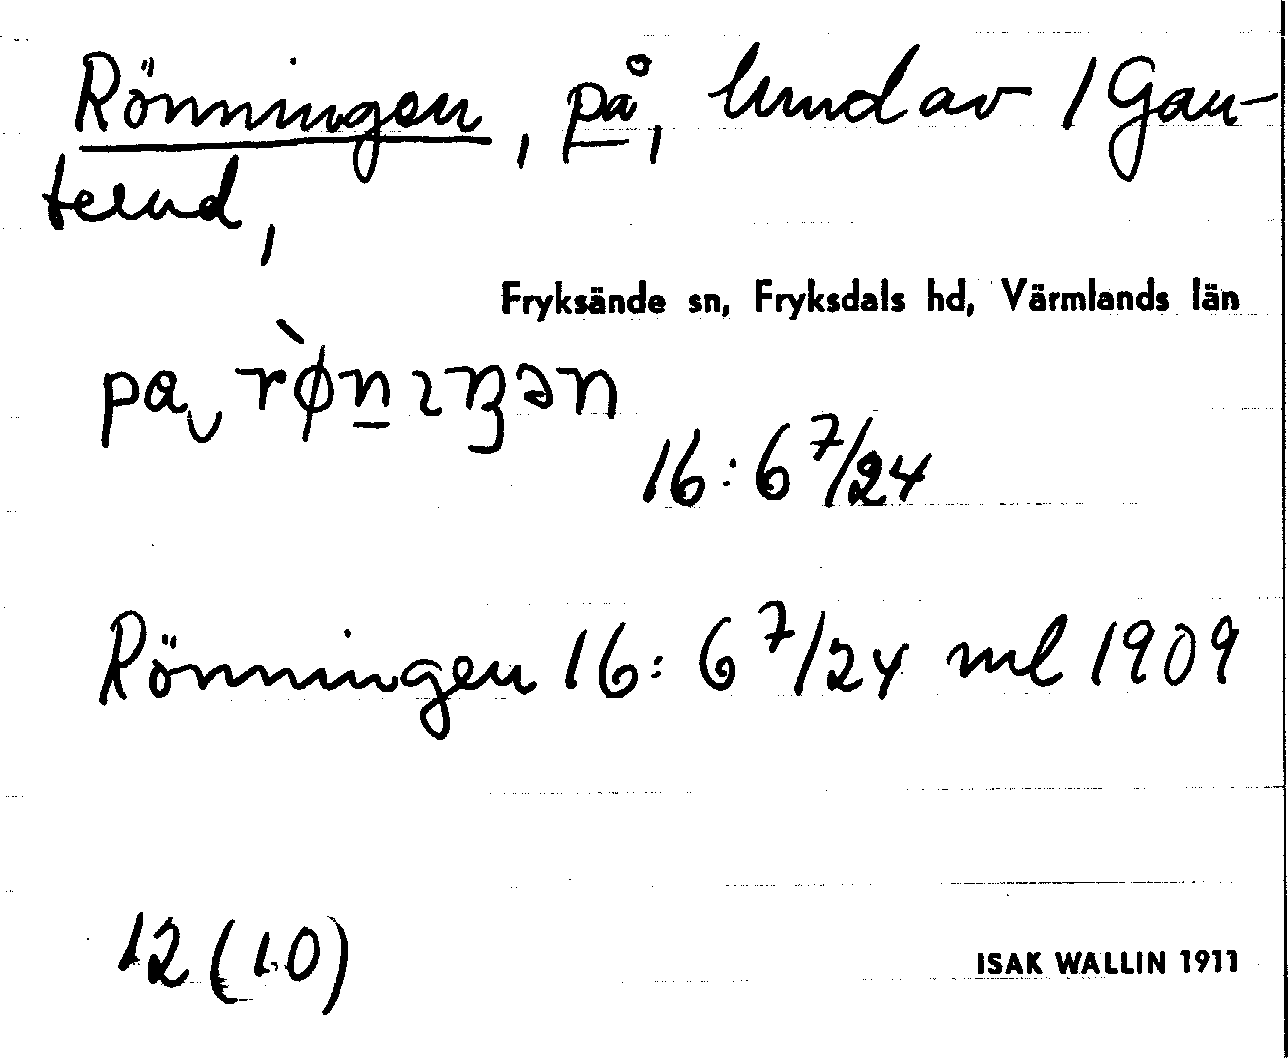 Rönningen, på, hmd av 1 Gau-
terud,
Fryksände sn, Fryksdals hd, Värmlands län
pa rø̀n̲ıŋən
16:6 7/24
Rönningen 16:6 7/24 ml 1909
12 (10)
ISAK WALLIN 1911